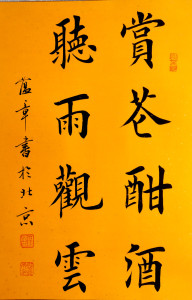 賞花酣酒
聽雨觀雲
蓝章書於北京